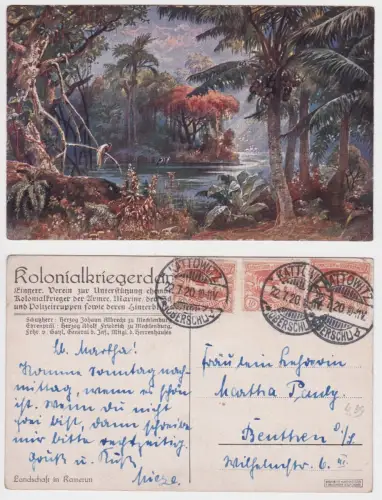 Kolonialkriegerdan
Eingetr. Verein zur Unterstützung ehemal
Kolonialkrieger der Armee, Marine, der
und Polizeitruppen sowie deren Hinterbl
Schutzherr: Herzog Johann Albrecht zu Mecklenburg
Ehrenvorsitz: Herzog Adolf Friedrich zu Mecklenburg
KATTOWITZ
22.7.20.10-11V.
(OBERSCHL.)
KATTOWITZ
22.7.20.10-11V.
(OBERSCHL.)
KATTOWITZ
7.20.10-11V.
(OBERSCHL.)
L. Martha!
Komme Sonntag nach-
mittag, wenn es schön
ist. Wenn du nicht
frei bist, dann schreibe
mir bitte rechtzeitig.
Gruß u. Kuß
Fräulein Lehrerin
Martha Pauly
Beuthen O/S
Wilhelmstr 6. III.
Landschaft in Kamerun